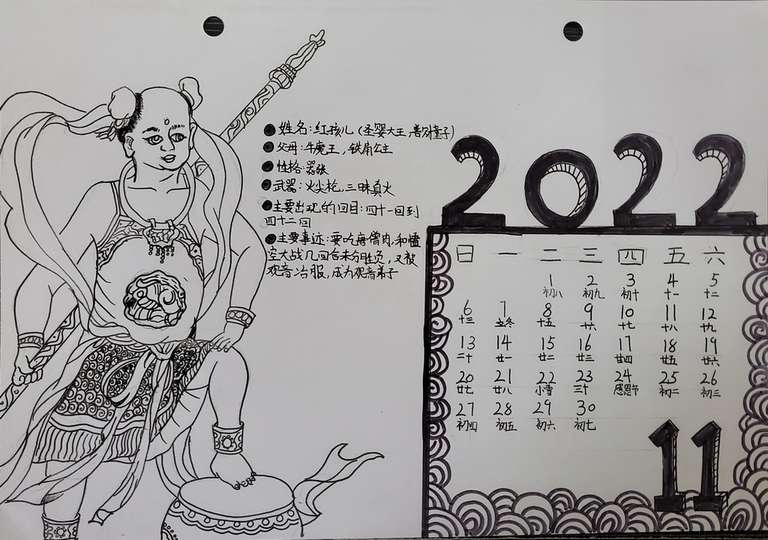 ●姓名:红孩儿(圣婴大王,善财童子)
●父母:牛魔王,铁扇公主
●性格:嚣张
●武器:火尖枪,三昧真火
●主要出现的回目:四十一回到
四十二回
●主要事迹:要吃唐僧肉,和悟
空大战几回合未分胜负,又被
观音冶服,成为观音弟子
2022
日 一 二 三 四 五 六
1 2 3 4 5
初八 初九 初十 十一 十二
6 7 8 9 10 11 12
十三 立冬 十五 十六 十七 十八 十九
13 14 15 16 17 18 19
二十 廿一 廿二 廿三 廿四 廿五 廿六
20 21 22 23 24 25 26
廿七 廿八 小雪 三十 感恩节 初二 初三
27 28 29 30
初四 初五 初六 初七
11